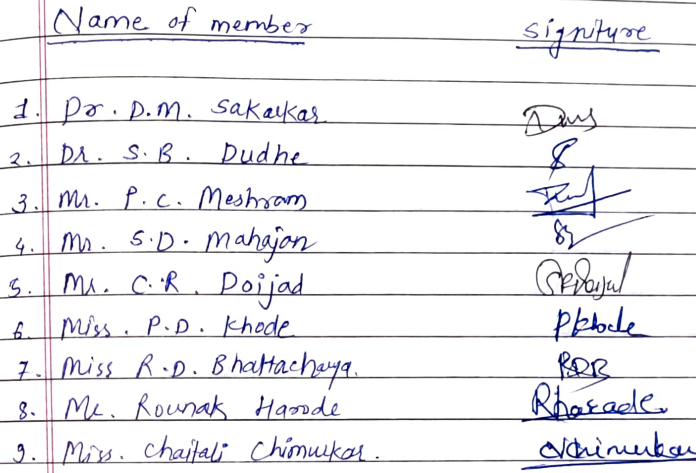 Name of member signiture
1. Dr. D.M. Sakalkar
2. Dr. S.B. Dudhe
3. Mr. P.C. Meshram
4. Mr. S.D. Mahajan
5. Mr. C.R. Doijad
6. Miss. P.D. Khode PKhode
7. Miss R.D. Bhattachaya. RDB
8. Mr. Rounak Harode Rharade
9. Miss. Chaitali Chimurkar.